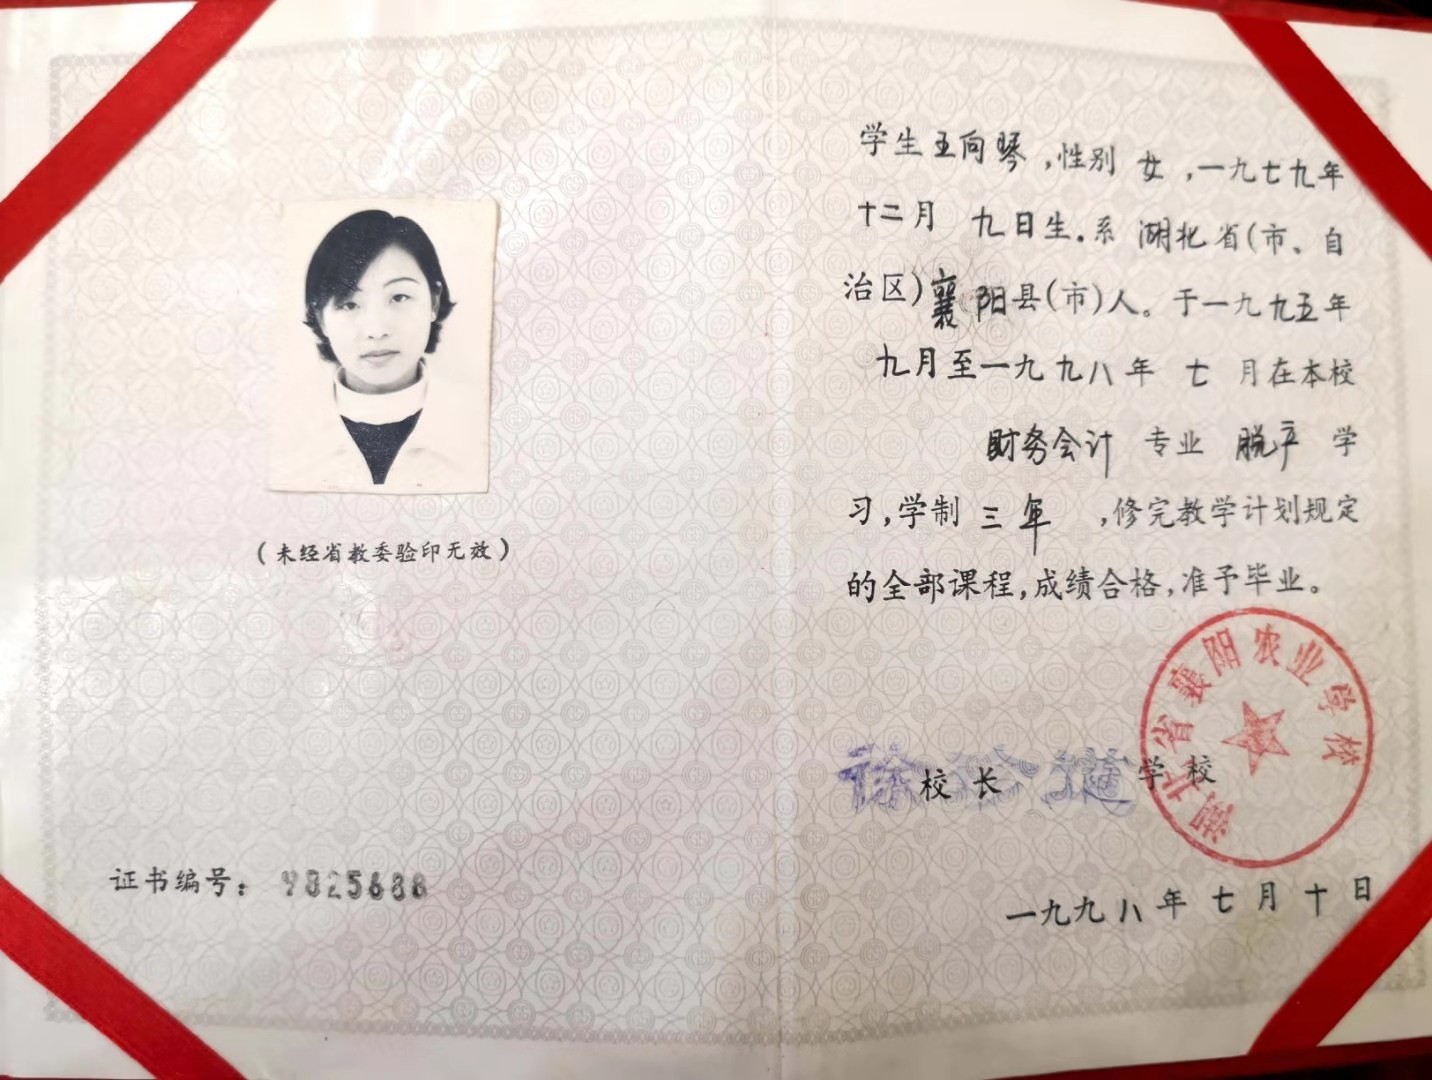 （未经省教委验印无效）
证书编号：
学生王向琴，性别 女，一九七九年
十二月 九日生。系 湖北省（市、自
治区）襄阳县（市）人。于一九九五年
九月至一九九八年 七 月在本校
财务会计 专业 脱产 学
习，学制 三年 ，修完教学计划规定
的全部课程，成绩合格，准予毕业。
校长 学校
湖北省襄阳农业学校
一九九八年七月十日